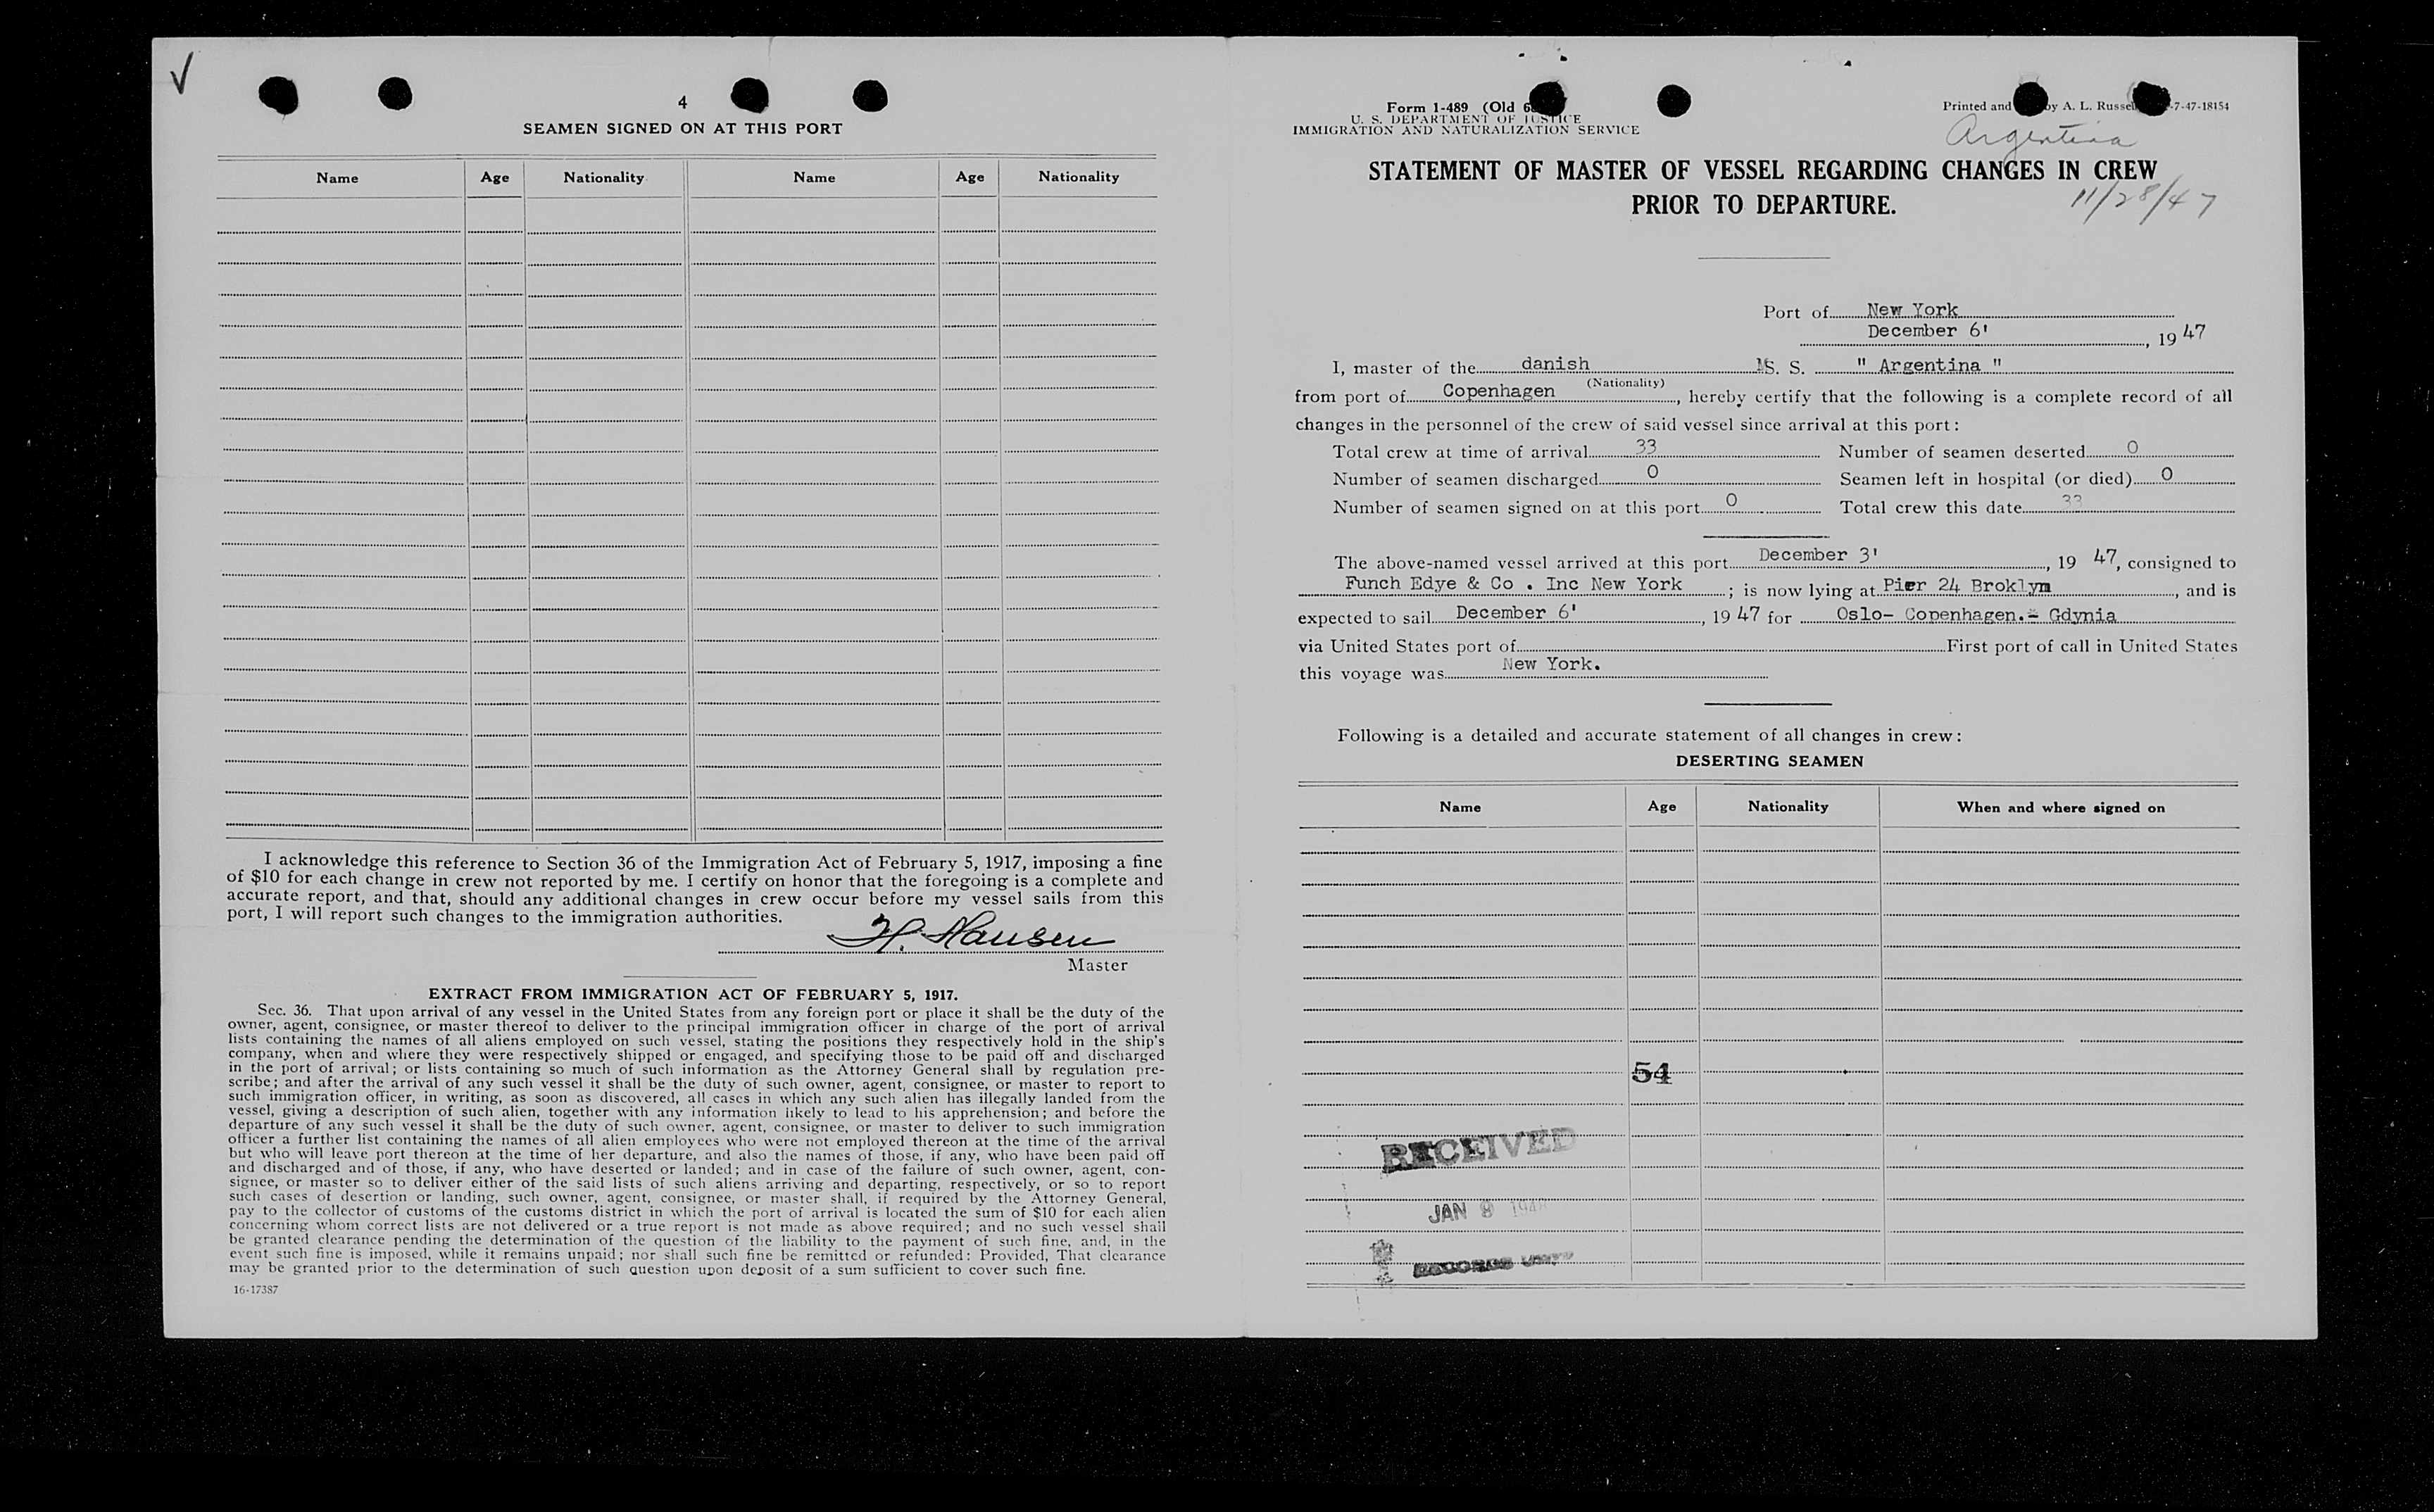 4
SEAMEN SIGNED ON AT THIS PORT
Name Age Nationality Name Age Nationality
I acknowledge this reference to Section 36 of the Immigration Act of February 5, 1917, imposing a fine
of $10 for each change in crew not reported by me. I certify on honor that the foregoing is a complete and
accurate report, and that, should any additional changes in crew occur before my vessel sails from this
port, I will report such changes to the immigration authorities.
H. Hansen
Master
EXTRACT FROM IMMIGRATION ACT OF FEBRUARY 5, 1917.
Sec. 36. That upon arrival of any vessel in the United States from any foreign port or place it shall be the duty of the
owner, agent, consignee, or master thereof to deliver to the principal immigration officer in charge of the port of arrival
lists containing the names of all aliens employed on such vessel, stating the positions they respectively hold in the ship's
company, when and where they were respectively shipped or engaged, and specifying those to be paid off and discharged
in the port of arrival; or lists containing so much of such information as the Attorney General shall by regulation pre-
scribe; and after the arrival of any such vessel it shall be the duty of such owner, agent, consignee, or master to report to
such immigration officer, in writing, as soon as discovered, all cases in which any such alien has illegally landed from the
vessel, giving a description of such alien, together with any information likely to lead to his apprehension; and before the
departure of any such vessel it shall be the duty of such owner, agent, consignee, or master to deliver to such immigration
officer a further list containing the names of all alien employees who were not employed thereon at the time of the arrival
but who will leave port thereon at the time of her departure, and also the names of those, if any, who have been paid off
and discharged and of those, if any, who have deserted or landed; and in case of the failure of such owner, agent, con-
signee, or master so to deliver either of the said lists of such aliens arriving and departing, respectively, or so to report
such cases of desertion or landing, such owner, agent, consignee, or master shall, if required by the Attorney General,
pay to the collector of customs of the customs district in which the port of arrival is located the sum of $10 for each alien
concerning whom correct lists are not delivered or a true report is not made as above required; and no such vessel shall
be granted clearance pending the determination of the question of the liability to the payment of such fine, and, in the
event such fine is imposed, while it remains unpaid; nor shall such fine be remitted or refunded: Provided, That clearance
may be granted prior to the determination of such question upon deposit of a sum sufficient to cover such fine.
16-17387
Form 1-489 (Old
U. S. DEPARTMENT OF JUSTICE
IMMIGRATION AND NATURALIZATION SERVICE
Printed and by A. L. Russell 7-47-18154
Argentina
STATEMENT OF MASTER OF VESSEL REGARDING CHANGES IN CREW
PRIOR TO DEPARTURE.
11/28/47
Port of New York
December 6' , 19 47
I, master of the danish M S. S. " Argentina "
(Nationality)
from port of Copenhagen , hereby certify that the following is a complete record of all
changes in the personnel of the crew of said vessel since arrival at this port:
Total crew at time of arrival 33 Number of seamen deserted 0
Number of seamen discharged 0 Seamen left in hospital (or died) 0
Number of seamen signed on at this port 0 Total crew this date 33
The above-named vessel arrived at this port December 3' , 19 47, consigned to
Funch Edye & Co . Inc New York ; is now lying at Pier 24 Broklyn , and is
expected to sail December 6' , 19 47 for Oslo- Copenhagen.- Gdynia
via United States port of First port of call in United States
this voyage was New York.
Following is a detailed and accurate statement of all changes in crew:
DESERTING SEAMEN
Name Age Nationality When and where signed on
54
RECEIVED
JAN 9 1948
RECORDS UNIT